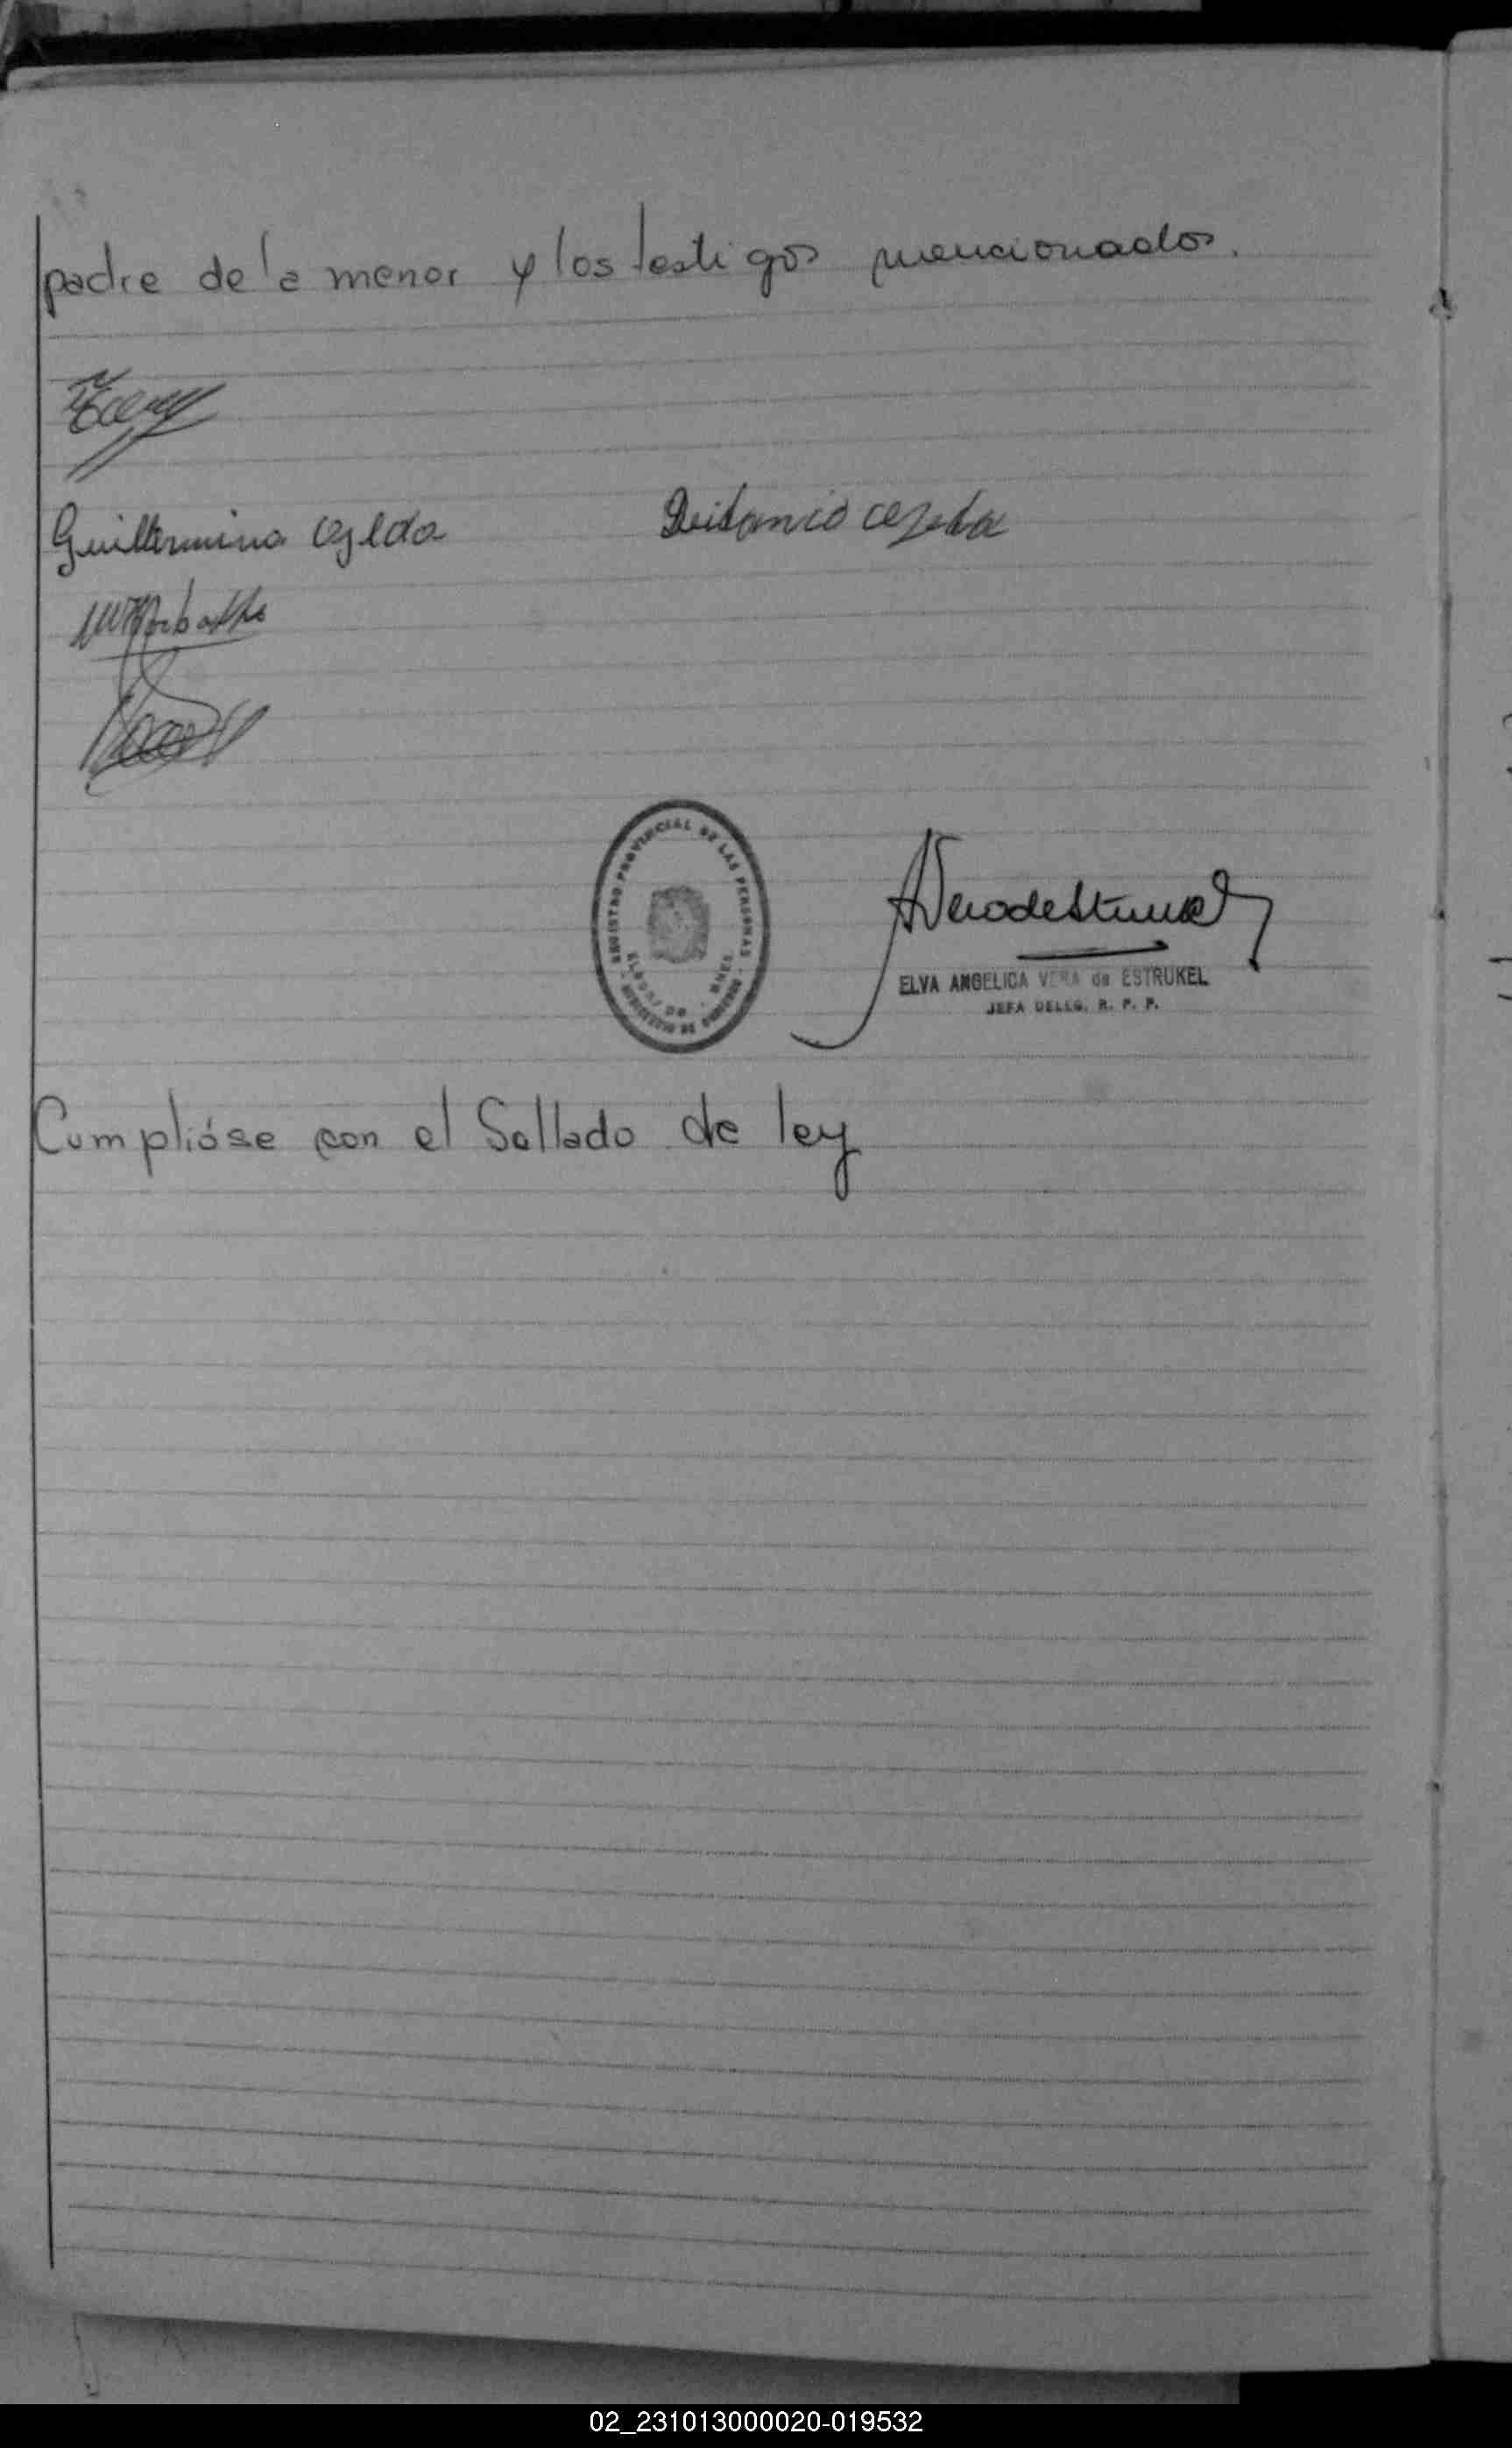 padre de la menor y los testigos mencionados.
Guillermina
REGISTRO PROVINCIAL DE LAS PERSONAS
ELDORADO - MNES.
MINISTERIO DE GOBIERNO
ELVA ANGELICA VERA de ESTRUKEL
JEFA DELEG. R. P. P.
Cumplióse con el Sellado de ley
02_231013000020-019532